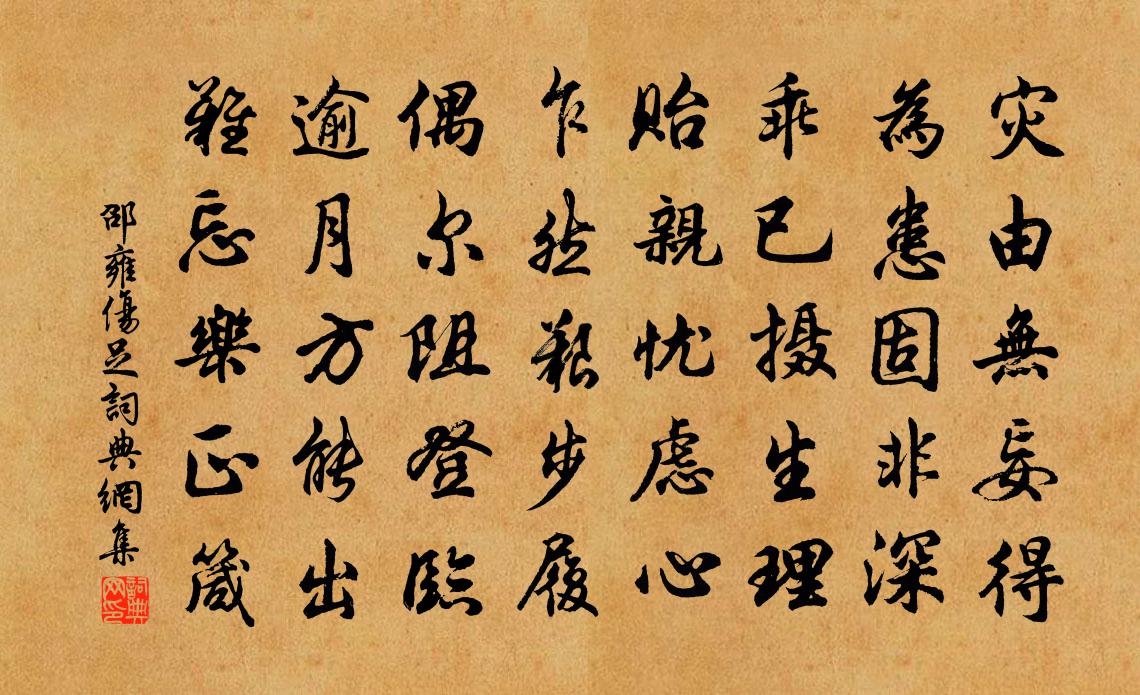 灾由無妄得
為患固非深
乖已摄生理
貽親忧慮心
乍然艱步履
偶尔阻登臨
逾月方能出
難忘樂正箴
邵雍傷足詞典網集
詞典网印